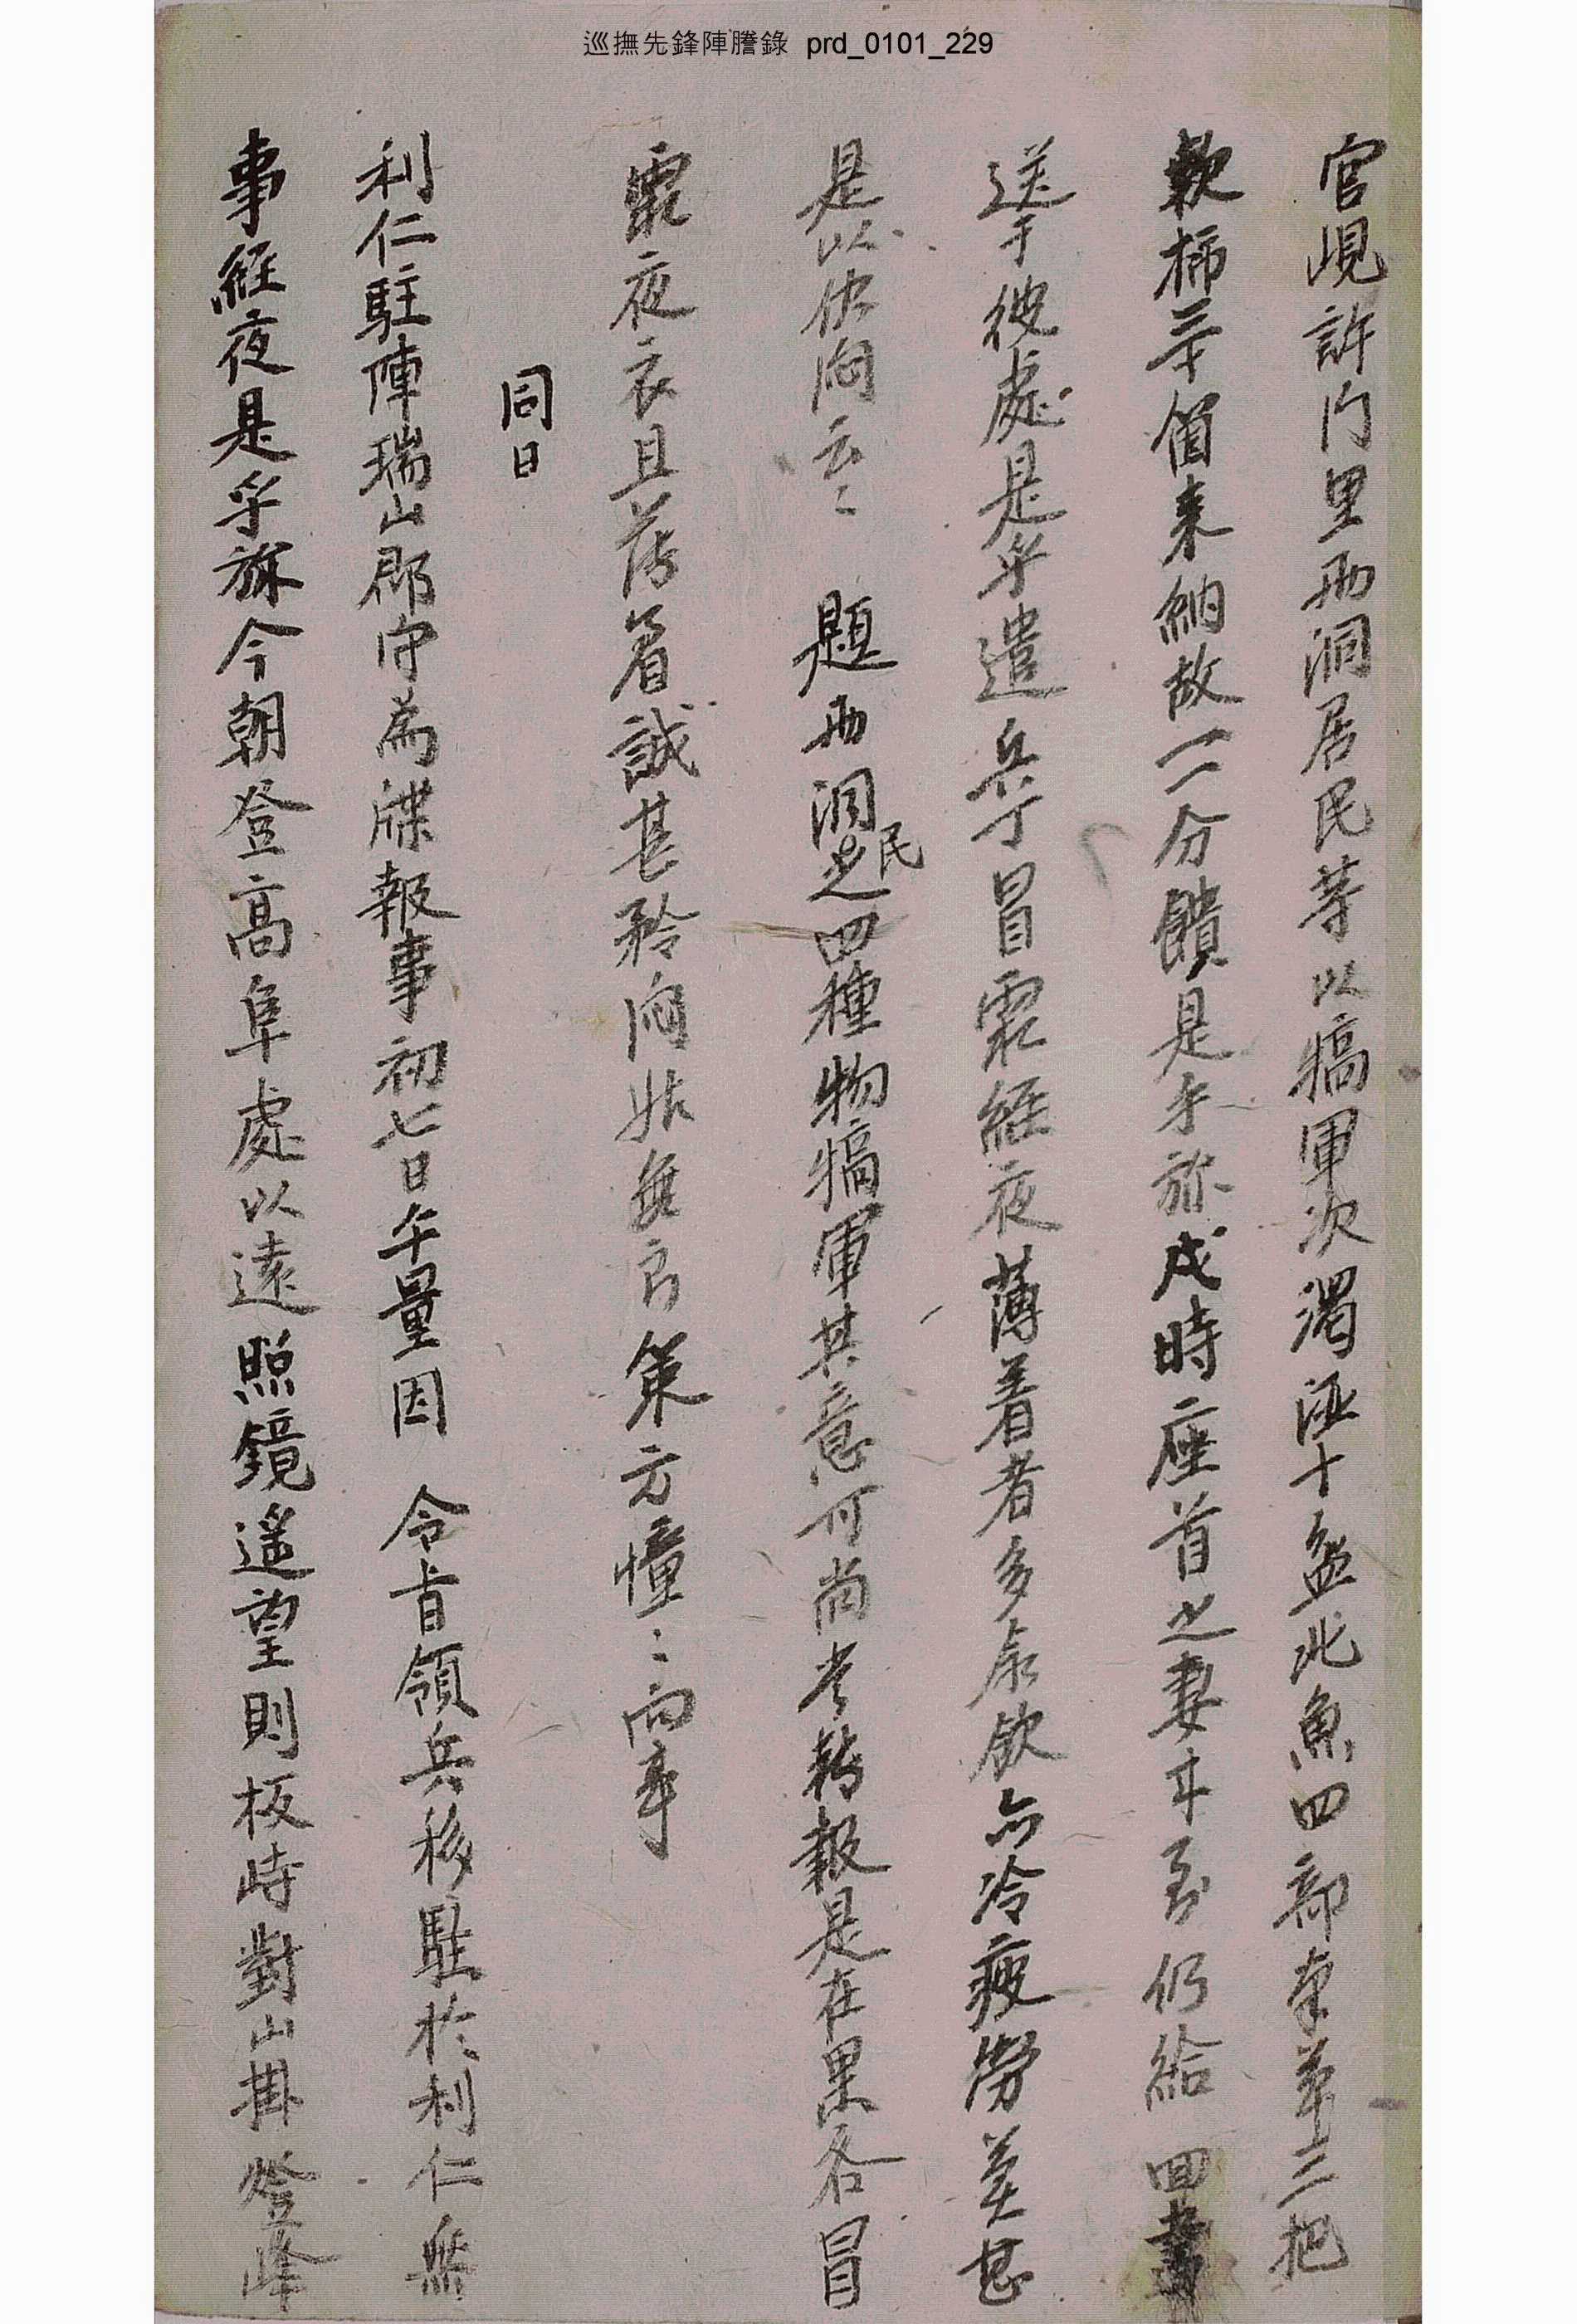 巡撫先鋒陣謄錄 prd_0101_229
官峴許門里兩洞居民等以犒軍次濁酒十盆北魚四部南草三把
軟柿三千箇來納故一一分饋是乎旀戌時座首之妻子到仍給回書
送于彼處是乎遣兵丁冒霜經夜薄着者多飮亦冷疲勞莫甚
是以伏悶云云 題兩洞民之四種物犒軍其意可尙當轉報是在果各冒
霜夜衣且薄着誠甚矜悶姑無良策方憧憧向事
同日
利仁駐陣瑞山郡守爲牒報事初七日午量因 令旨領兵移駐於利仁無
事經夜是乎旀今朝登高阜處以遠照鏡遙望則板峙對山掛燈峰